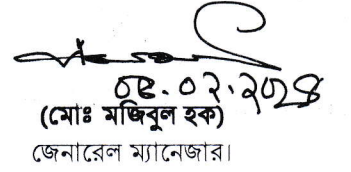 ০৫.০২.২০২৪
(মোঃ মজিবুল হক)
জেনারেল ম্যানেজার।